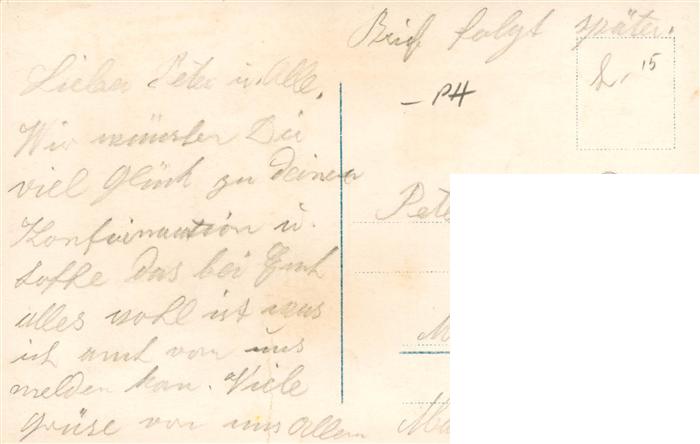 Brief folgt später.
Lieber Peter u. Alle.
Wir wünschen Dir
viel Glück zu deiner
Konfirmation u.
hoffe das bei Euch
alles wohl ist was
ich amt von uns
melden kan. Viele
Grüse von uns Allen
- PH
15
Pete
M
Ma